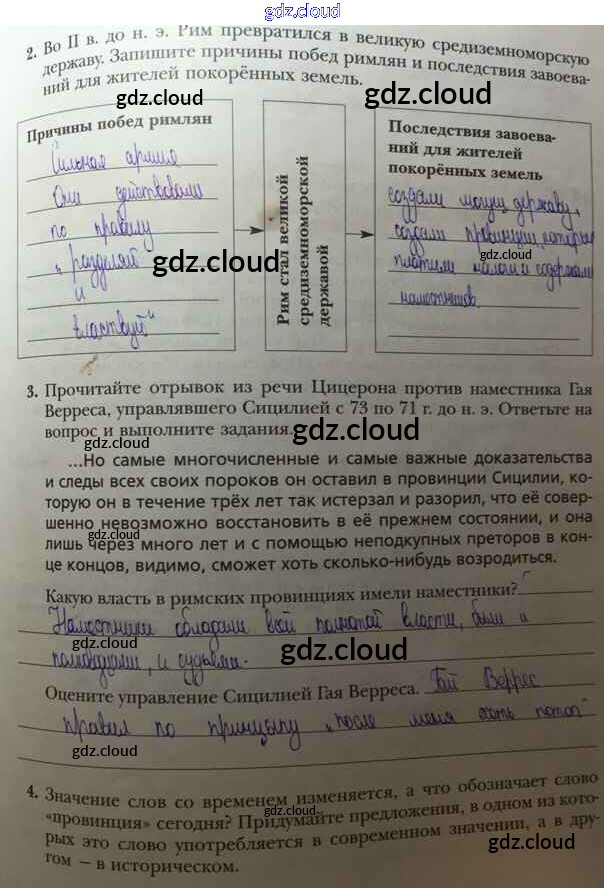 gdz.cloud
2. Во II в. до н. э. Рим превратился в великую средиземноморскую
державу. Запишите причины побед римлян и последствия завоева-
ний для жителей покорённых земель.
gdz.cloud
gdz.cloud
Причины побед римлян
Сильная армия
Они действовали
по правилу
„разделяй
и
властвуй"
Рим стал великой
средиземноморской
державой
Последствия завоева-
ний для жителей
покорённых земель
создали могущ державу,
создали провинции, которые
платили налоги и содержали
наместников.
gdz.cloud
gdz.cloud
3. Прочитайте отрывок из речи Цицерона против наместника Гая
Верреса, управлявшего Сицилией с 73 по 71 г. до н. э. Ответьте на
вопрос и выполните задания.
gdz.cloud
gdz.cloud
...Но самые многочисленные и самые важные доказательства
и следы всех своих пороков он оставил в провинции Сицилии, ко-
торую он в течение трёх лет так истерзал и разорил, что её совер-
шенно невозможно восстановить в её прежнем состоянии, и она
лишь через много лет и с помощью неподкупных преторов в кон-
це концов, видимо, сможет хоть сколько-нибудь возродиться.
gdz.cloud
gdz.cloud
Какую власть в римских провинциях имели наместники?
Наместники обладали всей полнотой власти, были и
полководцами, и судьями.
gdz.cloud
gdz.cloud
Оцените управление Сицилией Гая Верреса. Гай Веррес
правил по принципу „после меня хоть потоп"
gdz.cloud
4. Значение слов со временем изменяется, а что обозначает слово
«провинция» сегодня? Придумайте предложения, в одном из кото-
рых это слово употребляется в современном значении, а в дру-
гом – в историческом.
gdz.cloud
gdz.cloud